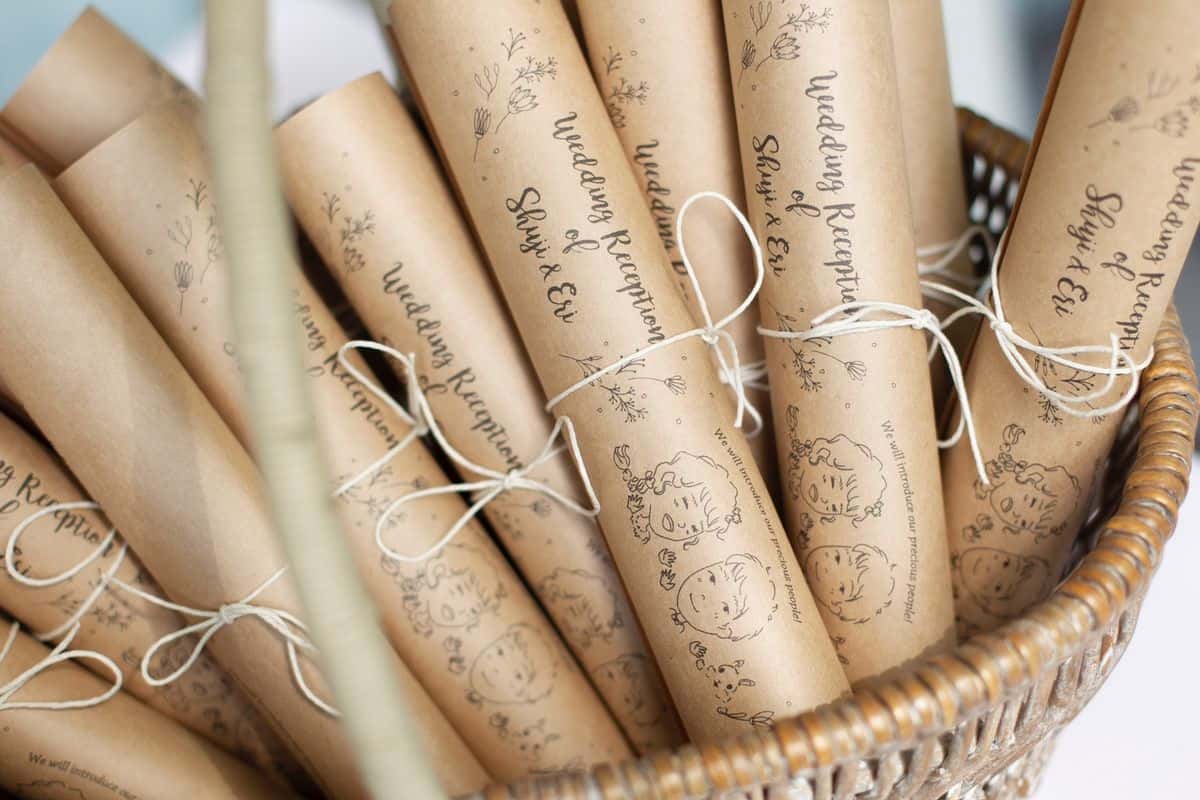 Wedding Reception
of
Shuji & Eri
We will introduce our precious people!
Wedding Reception
of
Shuji & Eri
We will introduce our precious people!
Wedding Reception
of
Shuji & Eri
Wedding Reception
of
Wedding
Wedding Reception
We will introduce